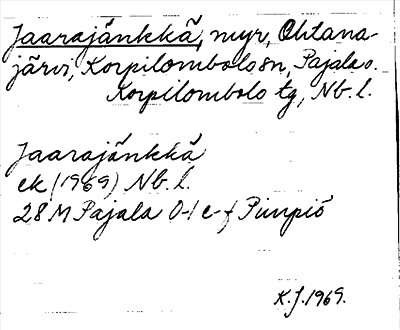 Jaarajänkkä, myr, Ohtana-
järvi, Korpilombolo sn, Pajala o.
Korpilombolo tg, Nb. l.
Jaarajänkkä
ek (1969) Nb. l.
28 M Pajala 0-1 e-f Pimpiö
K.J. 1969.